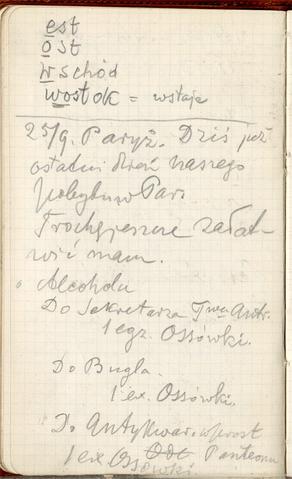 est
ost
wschód
wostok = wstaje
25/9. Paryż. Dziś już
ostatni dzień naszego
pobytu w Par.
Trochę jeszcze załat-
wić mam.
Alcohola
Do Sekretarza Twa Antr.
1 egz. Ossówki.
Do Bugla.
1 ex. Ossówki.
Do Antykwar. wprost
1 ex Ossówki. Panteonu